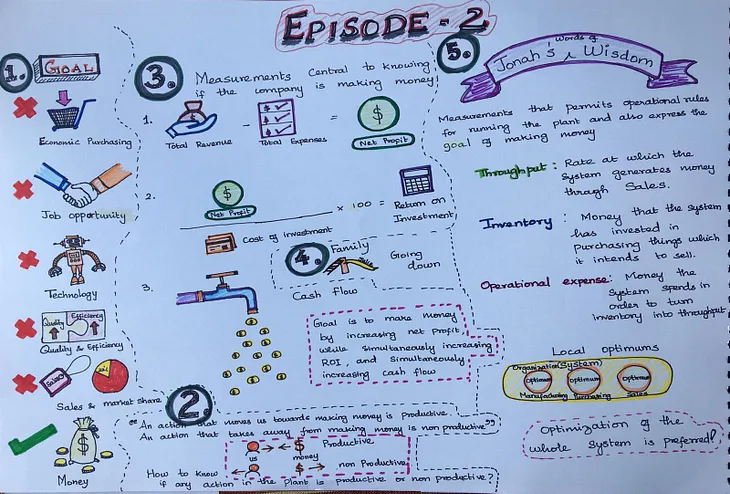 EPISODE - 2
1. GOAL
Economic Purchasing
Job opportunity
Technology
Quality
Efficiency
Quality & Efficiency
SALES
Sales & market share
$
Money
2.
"An action that moves us towards making money is productive.
An action that takes away from making money is non productive"
Productive
us money
$ non Productive
How to know
if any action in the Plant is productive or non productive?
3. Measurements Central to knowing
if the company is making money
1.
Total Revenue - Total Expenses = $ Net Profit
2.
$
Net Profit
x 100 = Return on
Investment
Cost of investment
3.
Cash flow
4. Family
Going
down
Goal is to make money
by increasing net profit
while simultaneously increasing
ROI, and simultaneously
increasing cash flow
5. Words of
Jonah's ^ Wisdom
Measurements that permits operational rules
for running the plant and also express the
goal of making money
Throughput: Rate at which the
System generates money
through Sales.
Inventory : Money that the system
has invested in
purchasing things which
it intends to sell.
Operational expense: Money the
System spends in
order to turn
inventory into throughput
Local optimums
Organization (System)
Optimum Optimum Optimum
Manufacturing Purchasing Sales
Optimization of the
whole System is preferred!